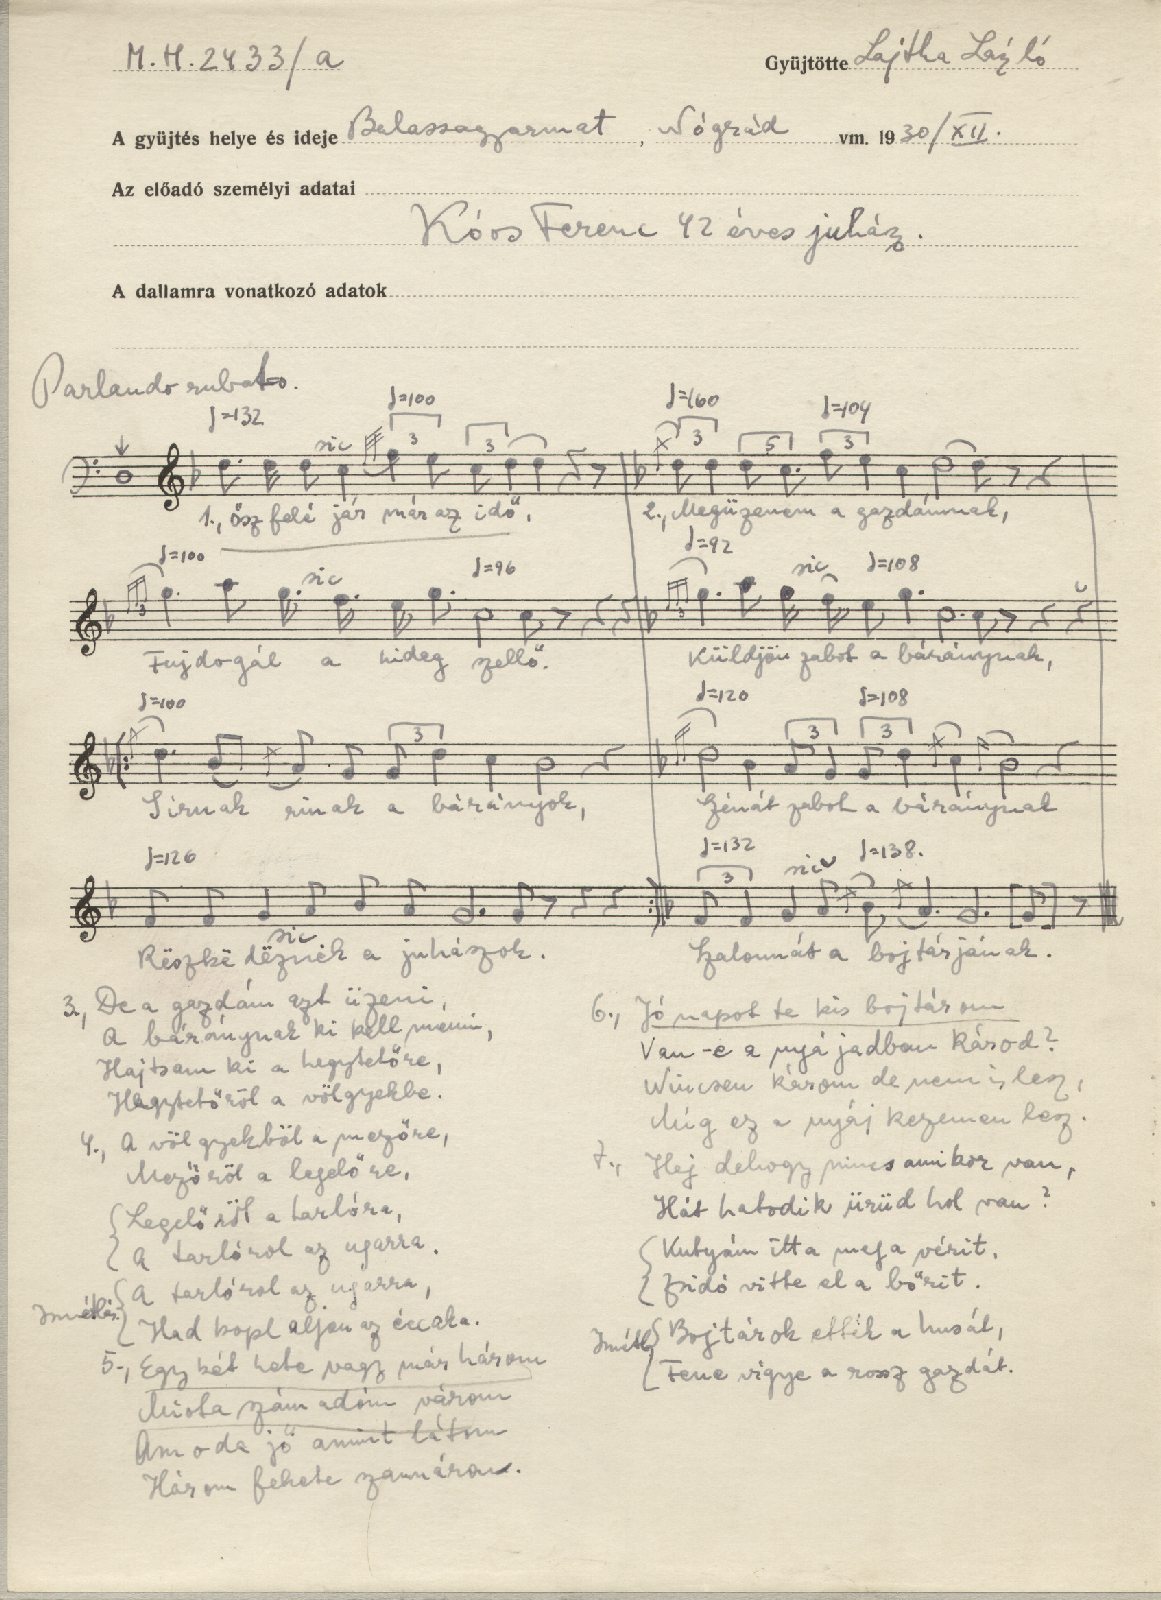 M.H. 2433/a
Gyüjtötte Lajtha László
A gyüjtés helye és ideje Balassagyarmat, Nógrád vm. 1930/XII.
Az előadó személyi adatai
Kóos Ferenc 42 éves juház.
A dallamra vonatkozó adatok
Parlando rubato.
♩=132 sic ♩=100 3 3 ♩=160 3 5 ♩=104 3
1., ősz felé jár már az idő, 2., Megüzenem a gazdámnak,
♩=100 3 sic ♩=96 ♩=92 3 sic ♩=108
Fujdogál a hideg szellő. Küldjön zabot a báránynak,
♩=100 3 ♩=120 3 ♩=108 3
Sirnak rinak a bárányok, Szénát zabot a báránynak
♩=126 sic ♩=132 3 sic ♩=138.
Rëszkë dëznek a juhászok. Szalonnát a bojtárjának.
3., De a gazdám azt üzeni,
A báránynak ki kell menni,
Hajtsam ki a hegytetőre,
Hegytetőről a völgyekbe.
4., A völgyekből a mezőre,
Mezőről a legelőre,
Legelőről a tarlóra,
A tarlórol az ugarra.
A tarlórol az ugarra,
Ismétlés. Had kopl aljon az éccaka.
5., Egy két hete vagy már három
Miota számadóm várom
Amoda jő amint látom
Három fekete szamáron.
6., Jó napot te kis bojtárom
Van-e a nyá jadban károd?
Nincsen károm de nem is lesz,
Míg ez a nyáj kezemen lesz.
7., Hej dehogy nincs amikor van,
Hát hatodik ürüd hol van?
Kutyám itta mega vérit,
Zsidó vitte el a bőrit.
Ismétl. Bojtárok ették a husát,
Fene vigye a rossz gazdát.